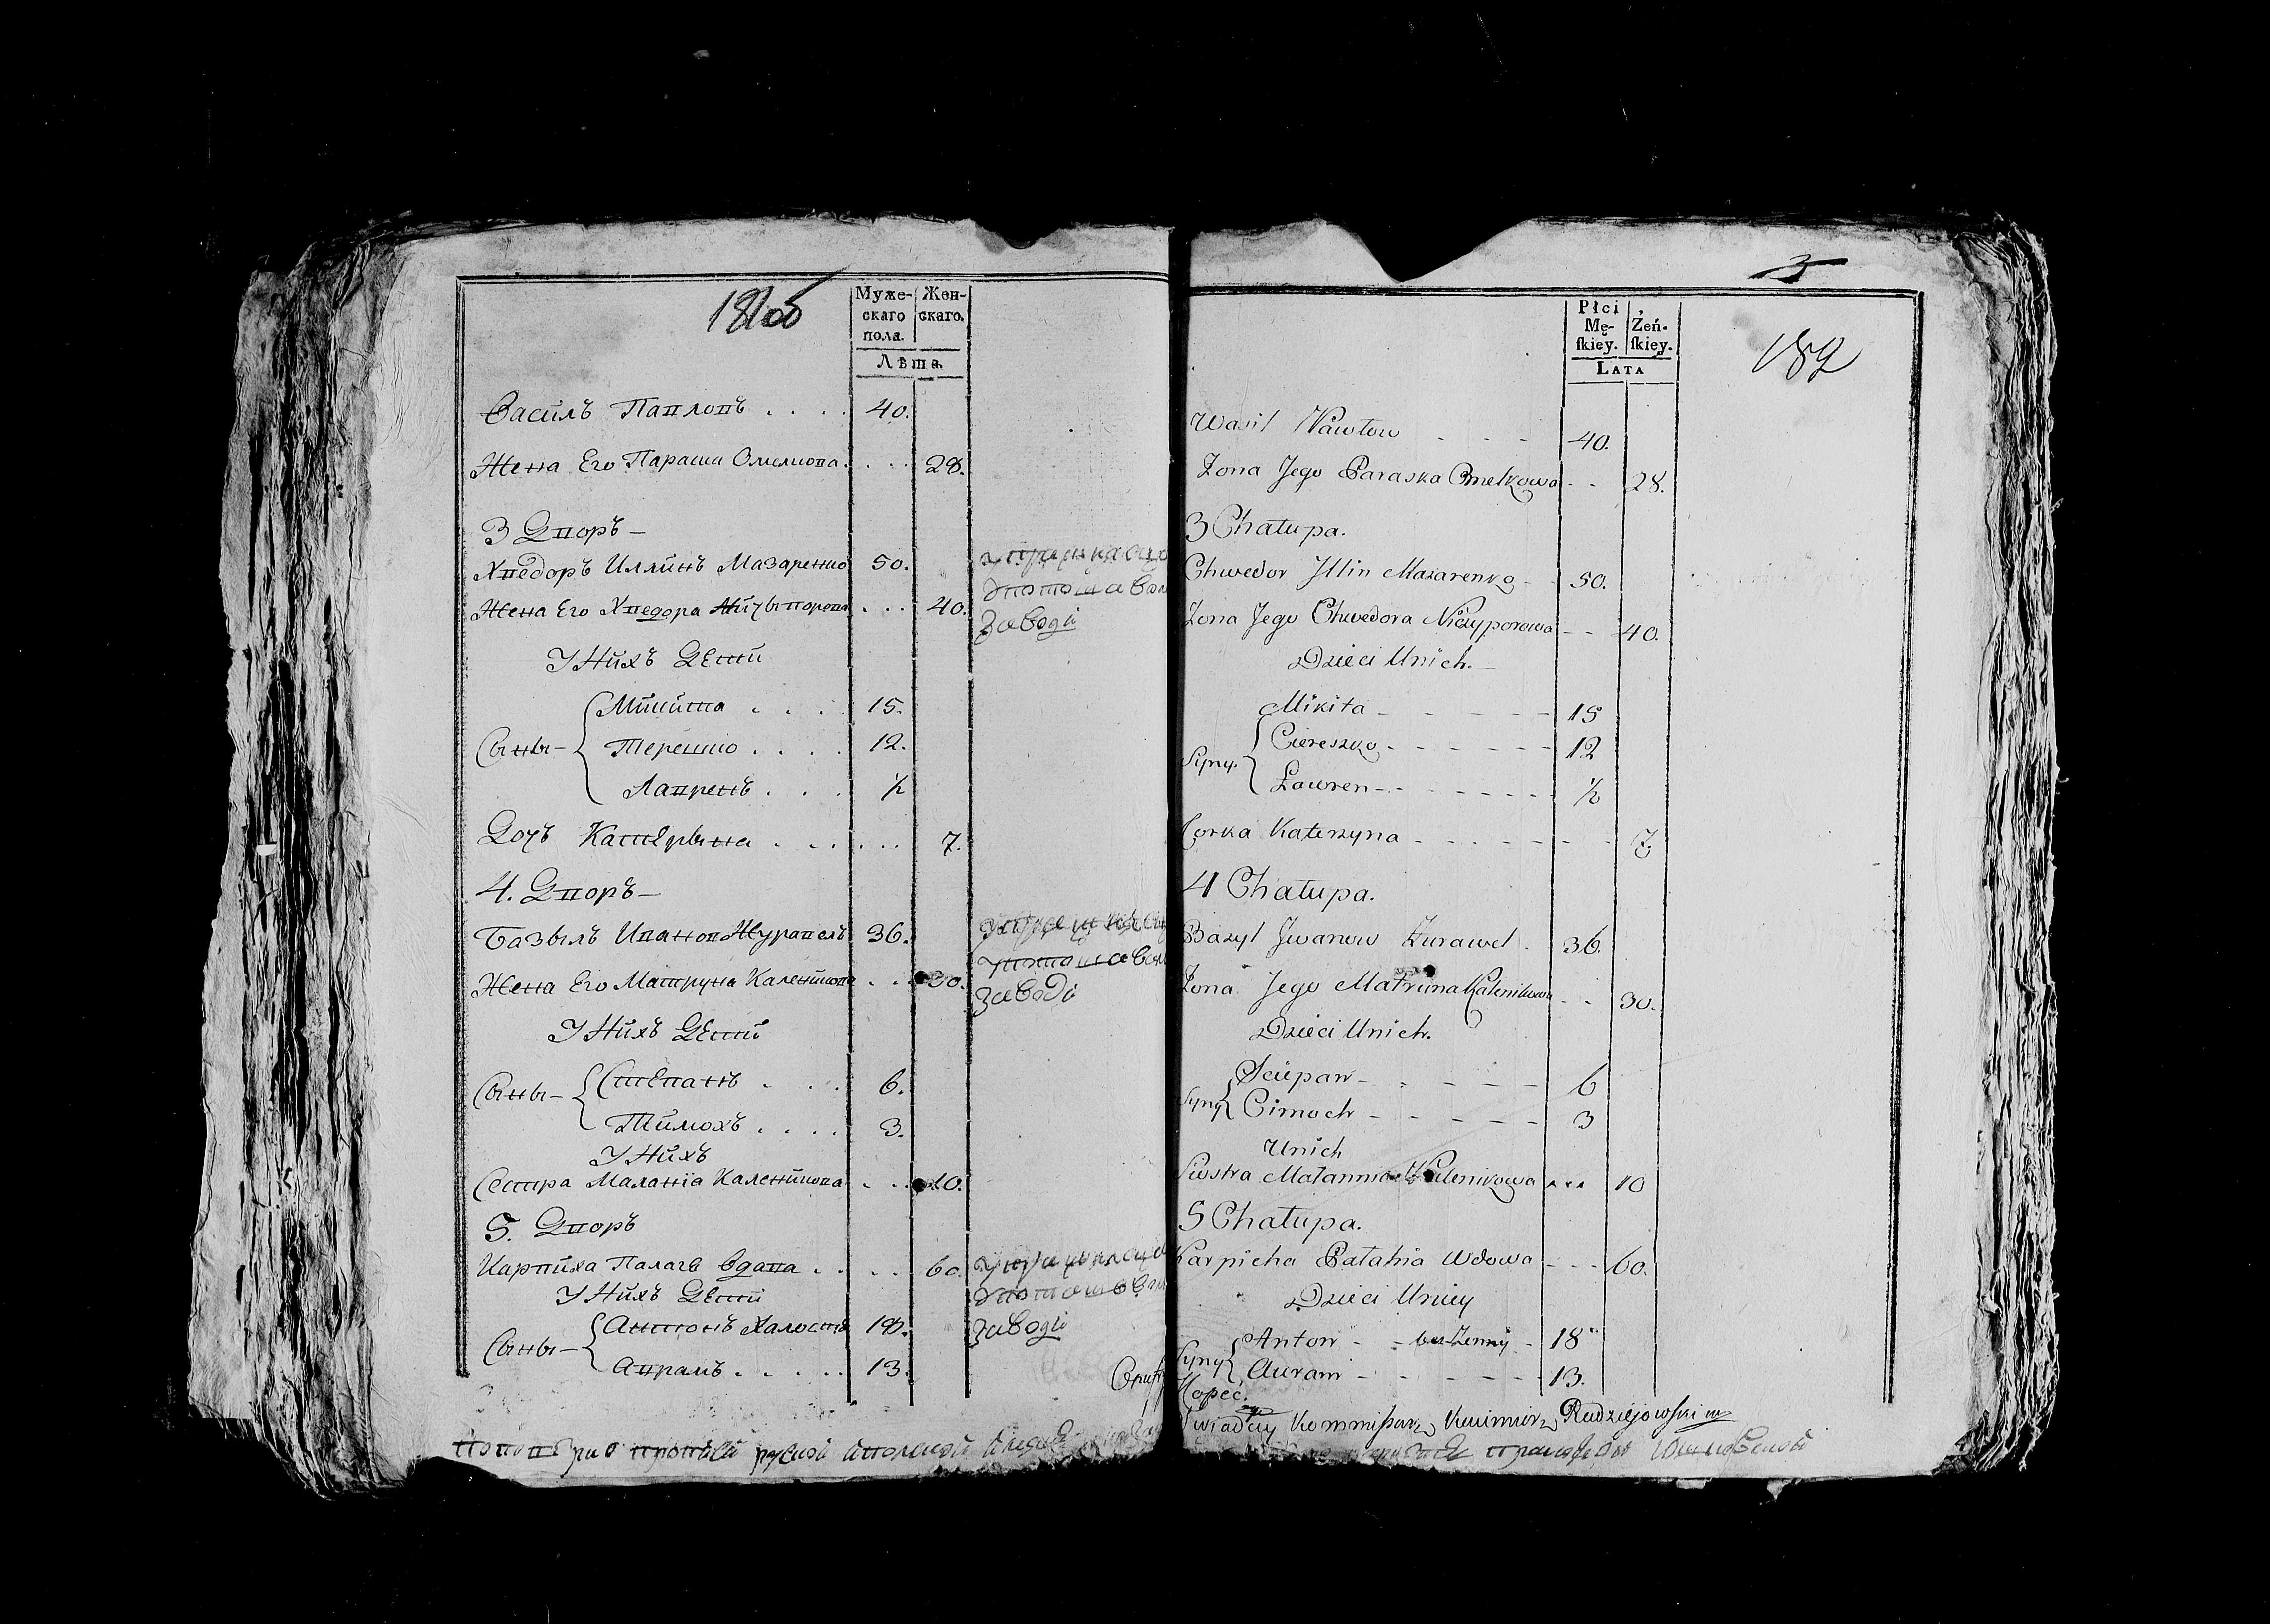 181об
Муже-
скаго
пола.
Жен-
скаго.
Лѣта
Васи́лъ Павловъ . . . . 40.
Жена Его Параска Омелкова . . . . 28.
3 Дворъ —
Хведоръ Иллинъ Мазаренко 50.
Жена Его Хведора Ничыпорова . . . 40.
заводи
У Нихъ Дети
Сыны —
Микита . . . . 15.
Терешко . . . . 12.
Лавренъ . . . ½
Дочъ Катерына . . . . . . 7.
4. Дворъ —
Базылъ Иванов Журавелъ 36.
Жена Его Матруна Каленикова . . . 30.
заводи
У Нихъ Дети
Сыны —
Степанъ . . . 6.
Тимохъ . . . . 3.
У Нихъ
Сестра Маланіа Каленикова . . . 10.
5. Дворъ
Карпиха Палагѣ вдава . . . . 60.
У Нихъ Дети
заводи
Сыны —
Антонъ Халостъ 18.
Аврамъ . . . . . 13.
3
182
Płci
Mę-
ſkiey.
Żeń-
ſkiey.
LATA
Wasil Pawłow - - - 40.
Zona Jego Paraska Omelkowa - - 28.
3 Chałupa.
Chwedor Jllin Mazarenko - - 50.
Zona Jego Chwedora Niczyporowa - - 40.
Dzieci Unich. -
Syny.
Mikita - - - - - 15
Ciereszko - - - - - - 12
Ławren - - - - - - - ½
Corka Katerzyna - - - - - - - 7.
4 Chałupa.
Bazyl Jwanow Zurawel . 36.
Zona Jego Matruna Kalenikowa - - 30.
Dzieci Unich.
Syny
Sciepan - - - - - 6
Cimoch - - - - - 3
Unich
Siostra Małannia Kalenikowa . . . 10
5 Chałupa.
Karpicha Pałahia Wdowa - - - 60.
Dzieci Uniey
Syny
Anton - - bez Zenny - 18
Auram - - - - - - 13.
Kopeć.
Kommissarz Kazimierz Rudziejowski